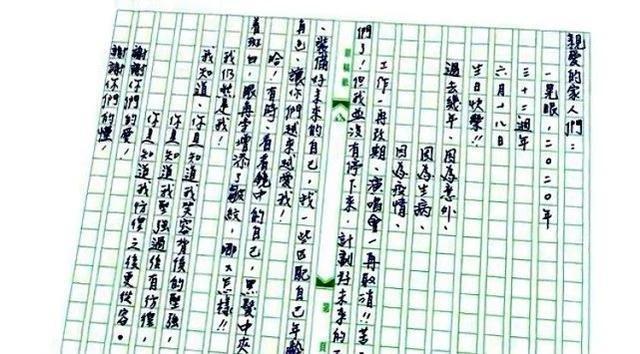 親愛的家人們：
一晃眼，二〇二〇年
三十二週年
六月十八日
生日快樂!!
過去幾年、因為意外、
因為生病、
因為疫情、
工作一再改期、演唱會一再取消!!苦
們了！但我並沒有停下來，計劃好未來的
、裝備好未來的自己，找一些匹配自己年齡
自己、讓你們越來越愛我！
哈！有時、看看鏡中的自己，黑髮中夾
着斑白，眼角增添了皺紋，哪又怎樣!!
我仍然是我！
我知道、你真知道我笑容背後的堅強，
你真知道我堅強過後有彷徨，
你真知道我彷徨之後更從容。
謝謝你們的愛！
謝謝你們的懂！